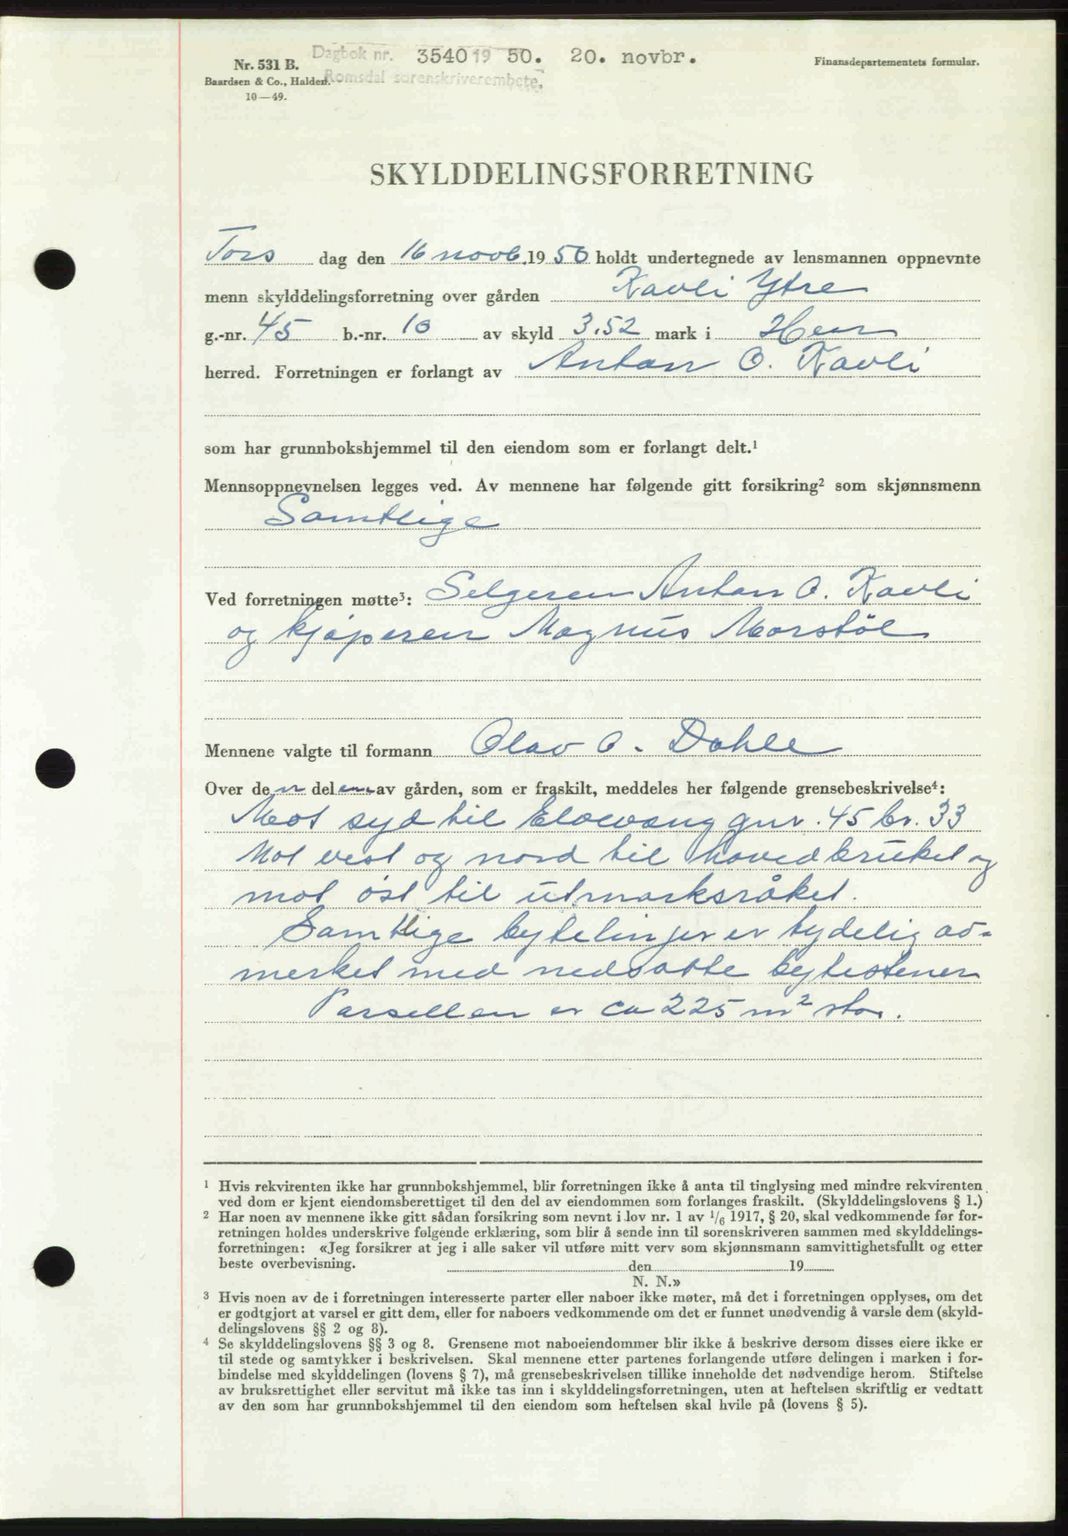 Nr. 531 B.
Baardsen & Co., Halden.
10—49.
Dagbok nr. 3540 19 50. 20. novbr.
Romsdal sorenskriverembete.
Finansdepartementets formular.
SKYLDDELINGSFORRETNING
Tors dag den 16 novb. 19 50 holdt undertegnede av lensmannen oppnevnte
menn skylddelingsforretning over gården Kavli Ytre
g.-nr. 45 b.-nr. 10 av skyld 3.52 mark i Hen
herred. Forretningen er forlangt av Anton O. Kavli
som har grunnbokshjemmel til den eiendom som er forlangt delt.¹
Mennsoppnevnelsen legges ved. Av mennene har følgende gitt forsikring² som skjønnsmenn
Samtlige
Ved forretningen møtte³: Selgeren Anton O. Kavli
og kjöperen Magnus Morstöl
Mennene valgte til formann Olav O. Dahle
Over den delen av gården, som er fraskilt, meddeles her følgende grensebeskrivelse⁴:
Mot syd til Elvevang gnr. 45 br. 33
Mot vest og nord til hovedbruket og
mot öst til utmarksråket.
Samtlige bytelinjer er tydelig av=
merket med nedsatte bytestener
Parsellen er ca 225 m² stor.
¹ Hvis rekvirenten ikke har grunnbokshjemmel, blir forretningen ikke å anta til tinglysing med mindre rekvirenten
ved dom er kjent eiendomsberettiget til den del av eiendommen som forlanges fraskilt. (Skylddelingslovens § 1.)
² Har noen av mennene ikke gitt sådan forsikring som nevnt i lov nr. 1 av ¹/₆ 1917, § 20, skal vedkommende før for-
retningen holdes underskrive følgende erklæring, som blir å sende inn til sorenskriveren sammen med skylddelings-
forretningen: «Jeg forsikrer at jeg i alle saker vil utføre mitt verv som skjønnsmann samvittighetsfullt og etter
beste overbevisning. den 19
N. N.»
³ Hvis noen av de i forretningen interesserte parter eller naboer ikke møter, må det i forretningen opplyses, om det
er godtgjort at varsel er gitt dem, eller for naboers vedkommende om det er funnet unødvendig å varsle dem (skyld-
delingslovens §§ 2 og 8).
⁴ Se skylddelingslovens §§ 3 og 8. Grensene mot naboeiendommer blir ikke å beskrive dersom disses eiere ikke er
til stede og samtykker i beskrivelsen. Skal mennene etter partenes forlangende utføre delingen i marken i for-
bindelse med skylddelingen (lovens § 7), må grensebeskrivelsen tillike inneholde det nødvendige herom. Stiftelse
av bruksrettighet eller servitut må ikke tas inn i skylddelingsforretningen, uten at heftelsen skriftlig er vedtatt
av den som har grunnbokshjemmel til den eiendom som heftelsen skal hvile på (lovens § 5).